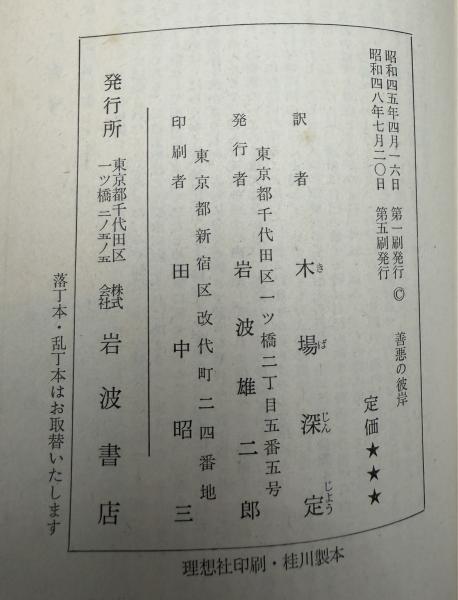 昭和四五年四月一六日　第一刷発行©
昭和四八年七月二〇日　第五刷発行
善悪の彼岸
定価★★★
訳者　木場深定
きばじんじょう
東京都千代田区一ツ橋二丁目五番五号
発行者　岩波雄二郎
東京都新宿区改代町二四番地
印刷者　田中昭三
発行所　東京都千代田区
一ツ橋二ノ五ノ五
株式
会社　岩波書店
落丁本・乱丁本はお取替いたします
理想社印刷・桂川製本